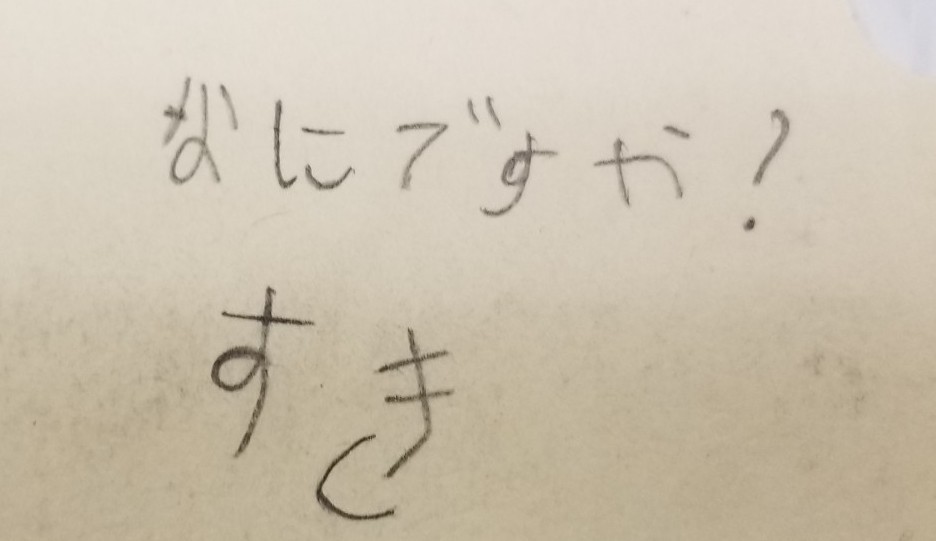 なにですか?
すき